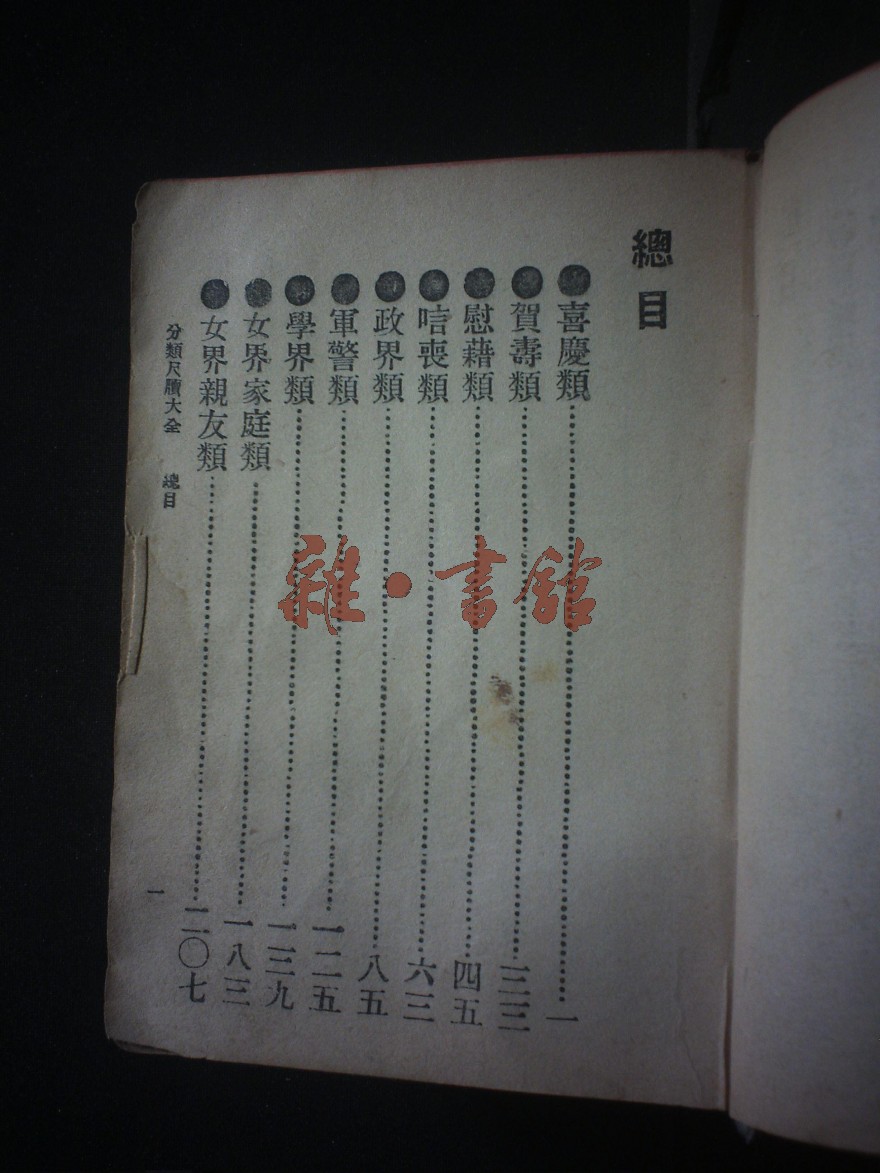 總目
喜慶類 一
賀壽類 三三
慰藉類 四五
唁喪類 六三
政界類 八五
軍警類 一二五
學界類 一三九
女界家庭類 一八三
女界親友類 二〇七
分類尺牘大全 總目 一
雜·書館